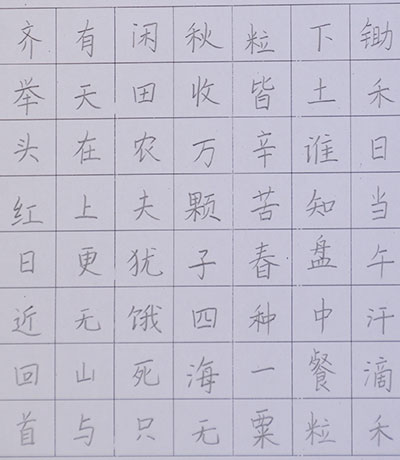 锄禾日当午汗滴禾
下土谁知盘中餐粒
粒皆辛苦春种一粟
秋收万颗子四海无
闲田农夫犹饿死只
有天在上更无山与
齐举头红日近回首